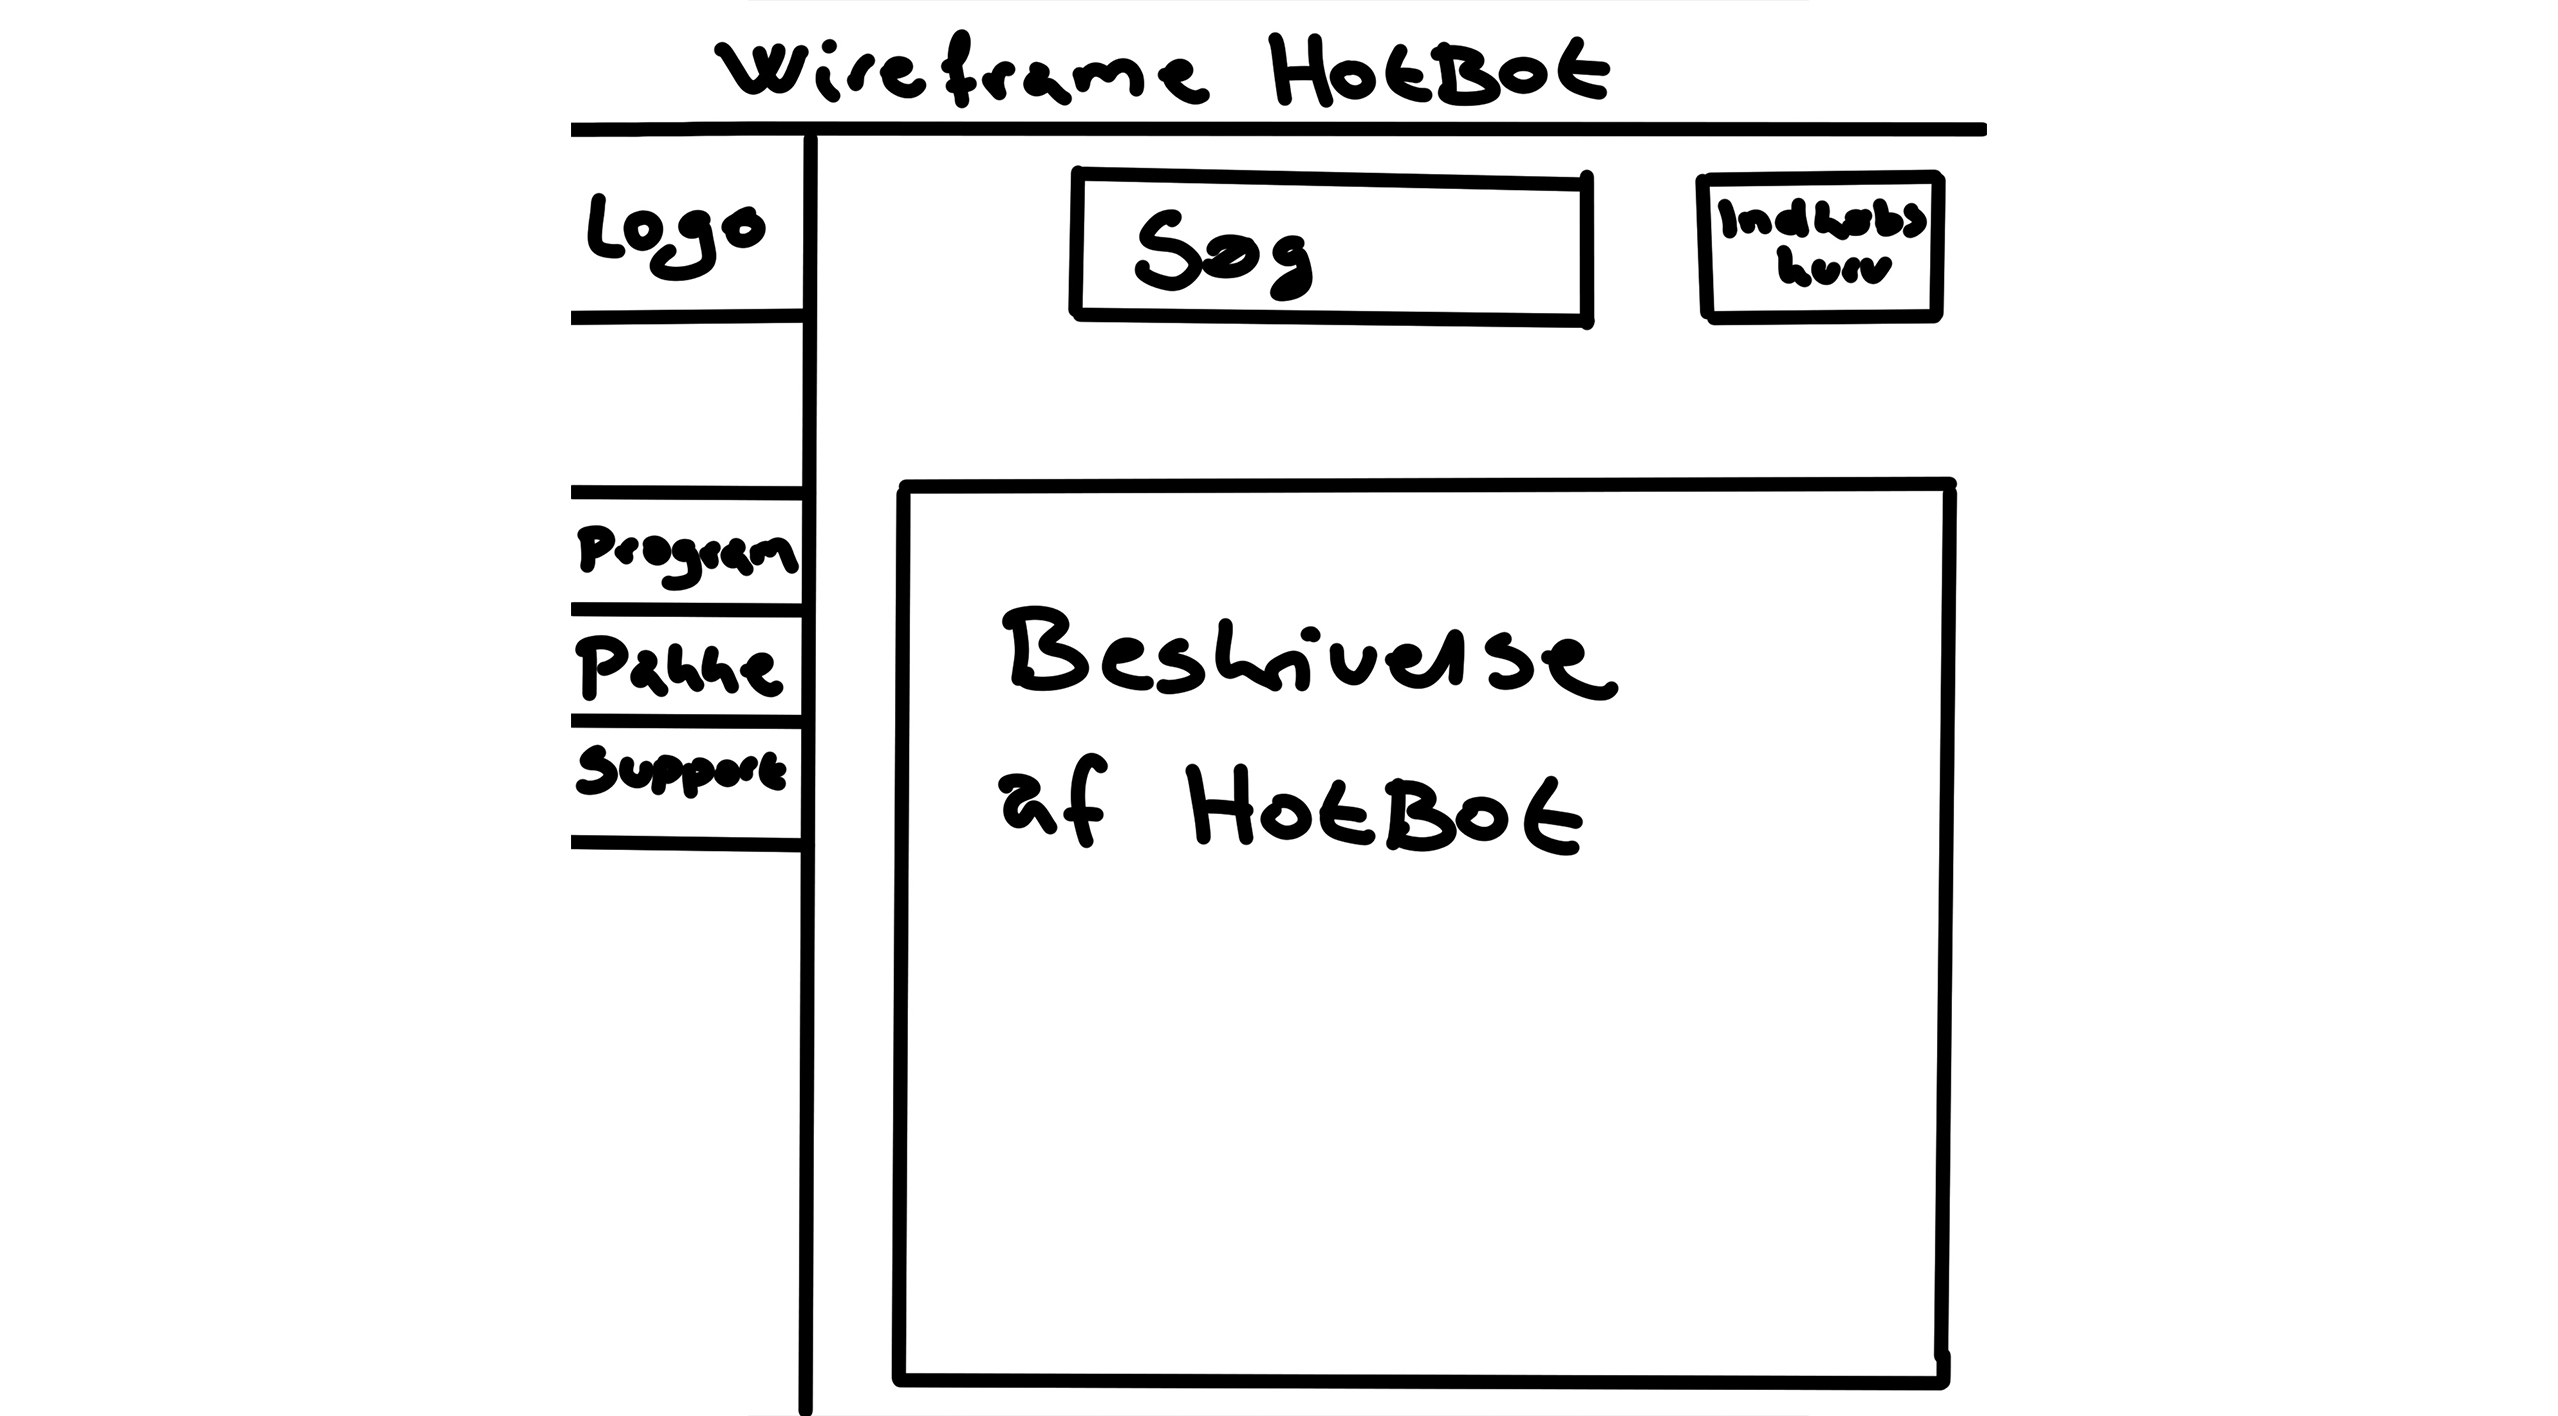 Wireframe HotBot
Logo
Søg
Indkøbs
kurv
Program
Pakke
Support
Beskrivelse
af HotBot